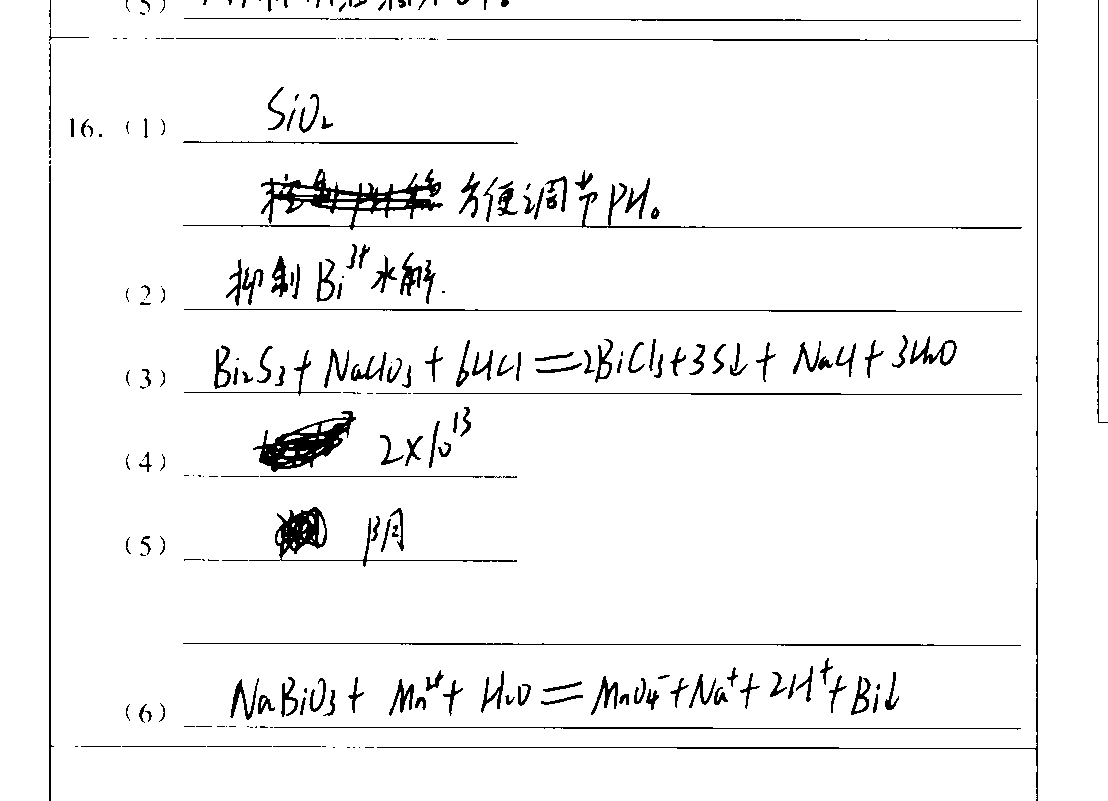 (5)
16. (1) SiO₂
方便调节PH。
(2) 抑制Bi³⁺水解.
(3) Bi₂S₃+NaClO₃+6HCl=2BiCl₃+3S↓+NaCl+3H₂O
(4) 2×10¹³
(5) 阴
(6) NaBiO₃+Mn²⁺+H₂O=MnO₄⁻+Na⁺+2H⁺+Bi↓